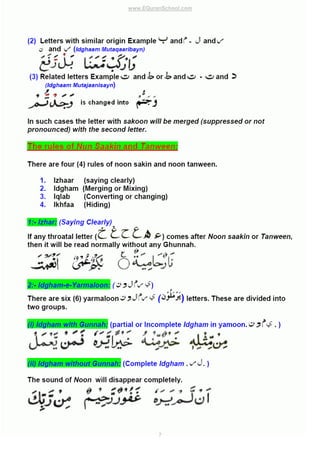 www.EQuranSchool.com
(2) Letters with similar origin Example ب and م - ل and ر
ن and ر (Idghaam Mutaqaaribayn)
ارْكَبْ مَّعَنَا
(3) Related letters Example ت and ط or ط and ت - ت and د
(Idghaam Mutajaanisayn)
is changed into
In such cases the letter with sakoon will be merged (suppressed or not
pronounced) with the second letter.
The rules of Nun Saakin and Tanween:
There are four (4) rules of noon sakin and noon tanween.
1. Izhaar (saying clearly)
2. Idgham (Merging or Mixing)
3. Iqlab (Converting or changing)
4. Ikhfaa (Hiding)
1:- Izhar: (Saying Clearly)
If any throatal letter (خ غ ح ع ه ء) comes after Noon saakin or Tanween,
then it will be read normally without any Ghunnah.
نَارٌ حَامِيَةٌ أَنْعَمْتَ
2:- Idgham-e-Yarmaloon: (ي ر م ل و ن)
There are six (6) yarmaloon ي ر م ل و ن (يَرْمَلُوْنَ) letters. These are divided into
two groups.
(i) Idgham with Gunnah: (partial or Incomplete Idgham in yamoon. ي م و ن . )
مِنْ مِّثْلِهٖ خَيْرٌ مِّنْهُ خَيْرًا يَّرَهٗ فَمَنْ يَّعْمَلْ
(ii) Idgham without Gunnah: (Complete Idgham . ل ر . )
The sound of Noon will disappear completely.
اَنْ لَّمْ يَرَهٗ غَفُوْرٌ رَّحِيْمٌ مِنْ رَّبِّكَ
7